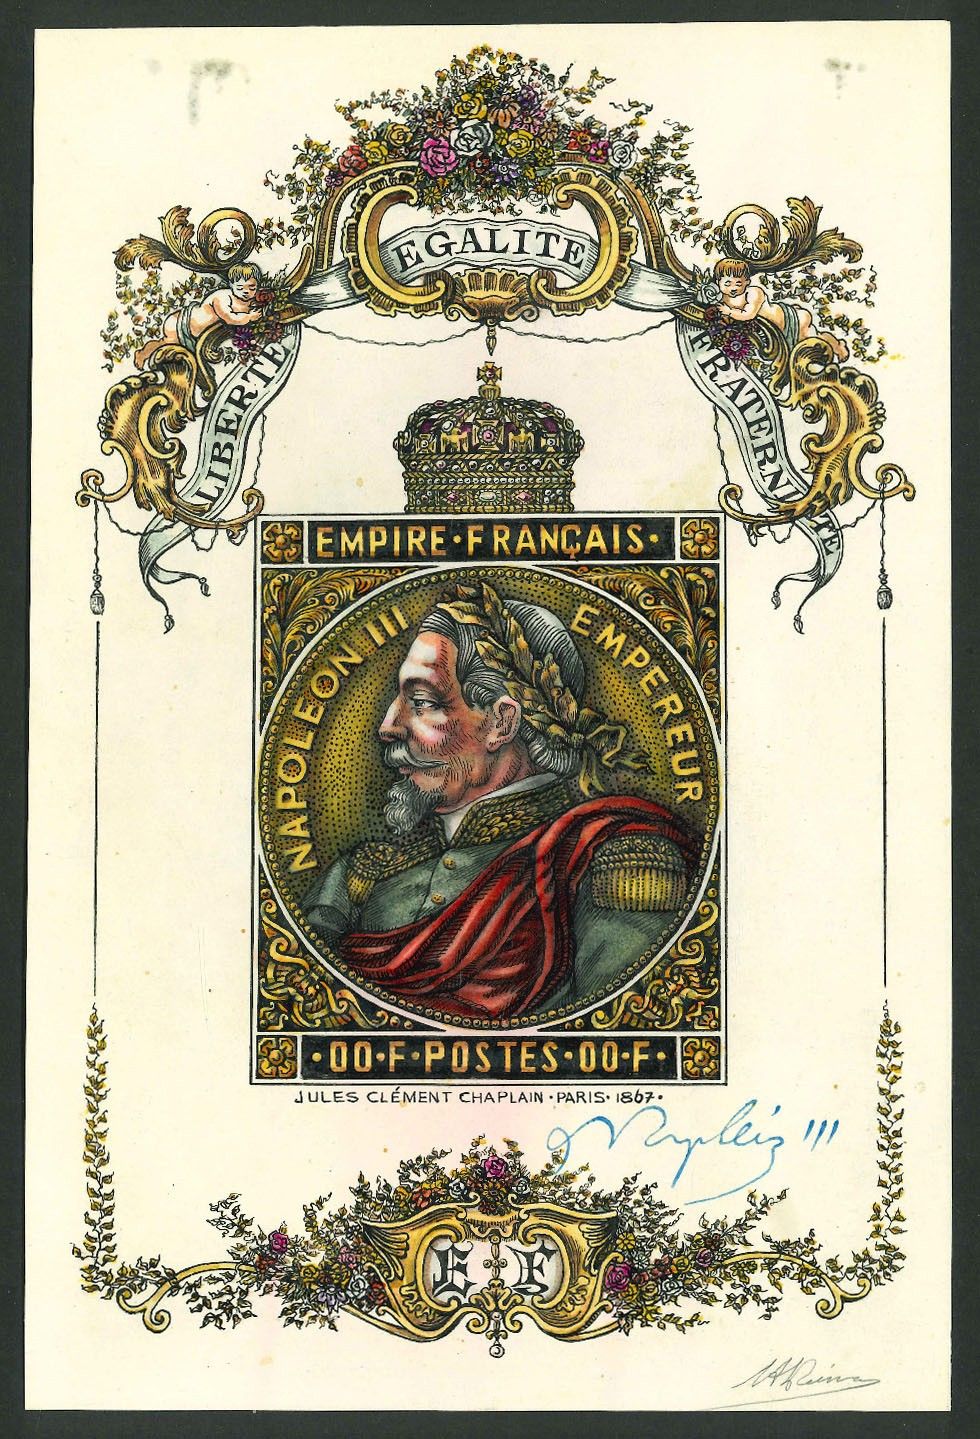 EGALITE
LIBERTE
FRATERNITE
EMPIRE·FRANÇAIS·
NAPOLEON III EMPEREUR
·00·F·POSTES·00·F·
JULES CLÉMENT CHAPLAIN·PARIS·1867·
E F